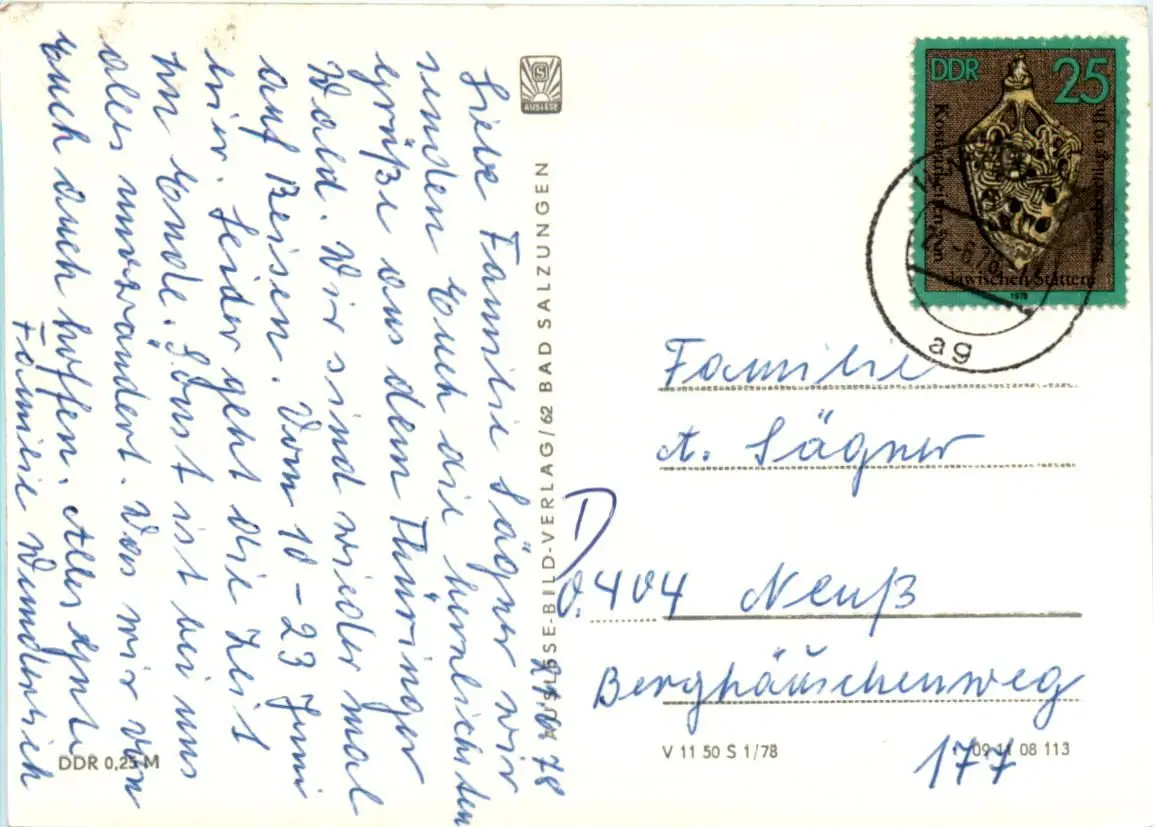 21.6.78
Liebe Familie Sägner wir
senden Euch die herzlichsten
Grüße aus dem Thüringer
Wald. Wir sind wieder mal
auf Reisen. Vom 10-23 Juni
hier. Leider geht die Zeit
zu Ende. Sonst ist bei uns
alles unverändert. Was wir von
Euch auch hoffen. Alles Gute
Familie
AUSLESE
AUSLESE-BILD-VERLAG/62 BAD SALZUNGEN
DDR 0,25 M
DDR 25
Kostbarkeiten von
slawischen Stätten
10. Jh.
1978
-6.78
ag
Familie
A. Sägner
D
0.404 Neuß
Berghäuschenweg
177
V 11 50 S 1/78
09 11 08 113